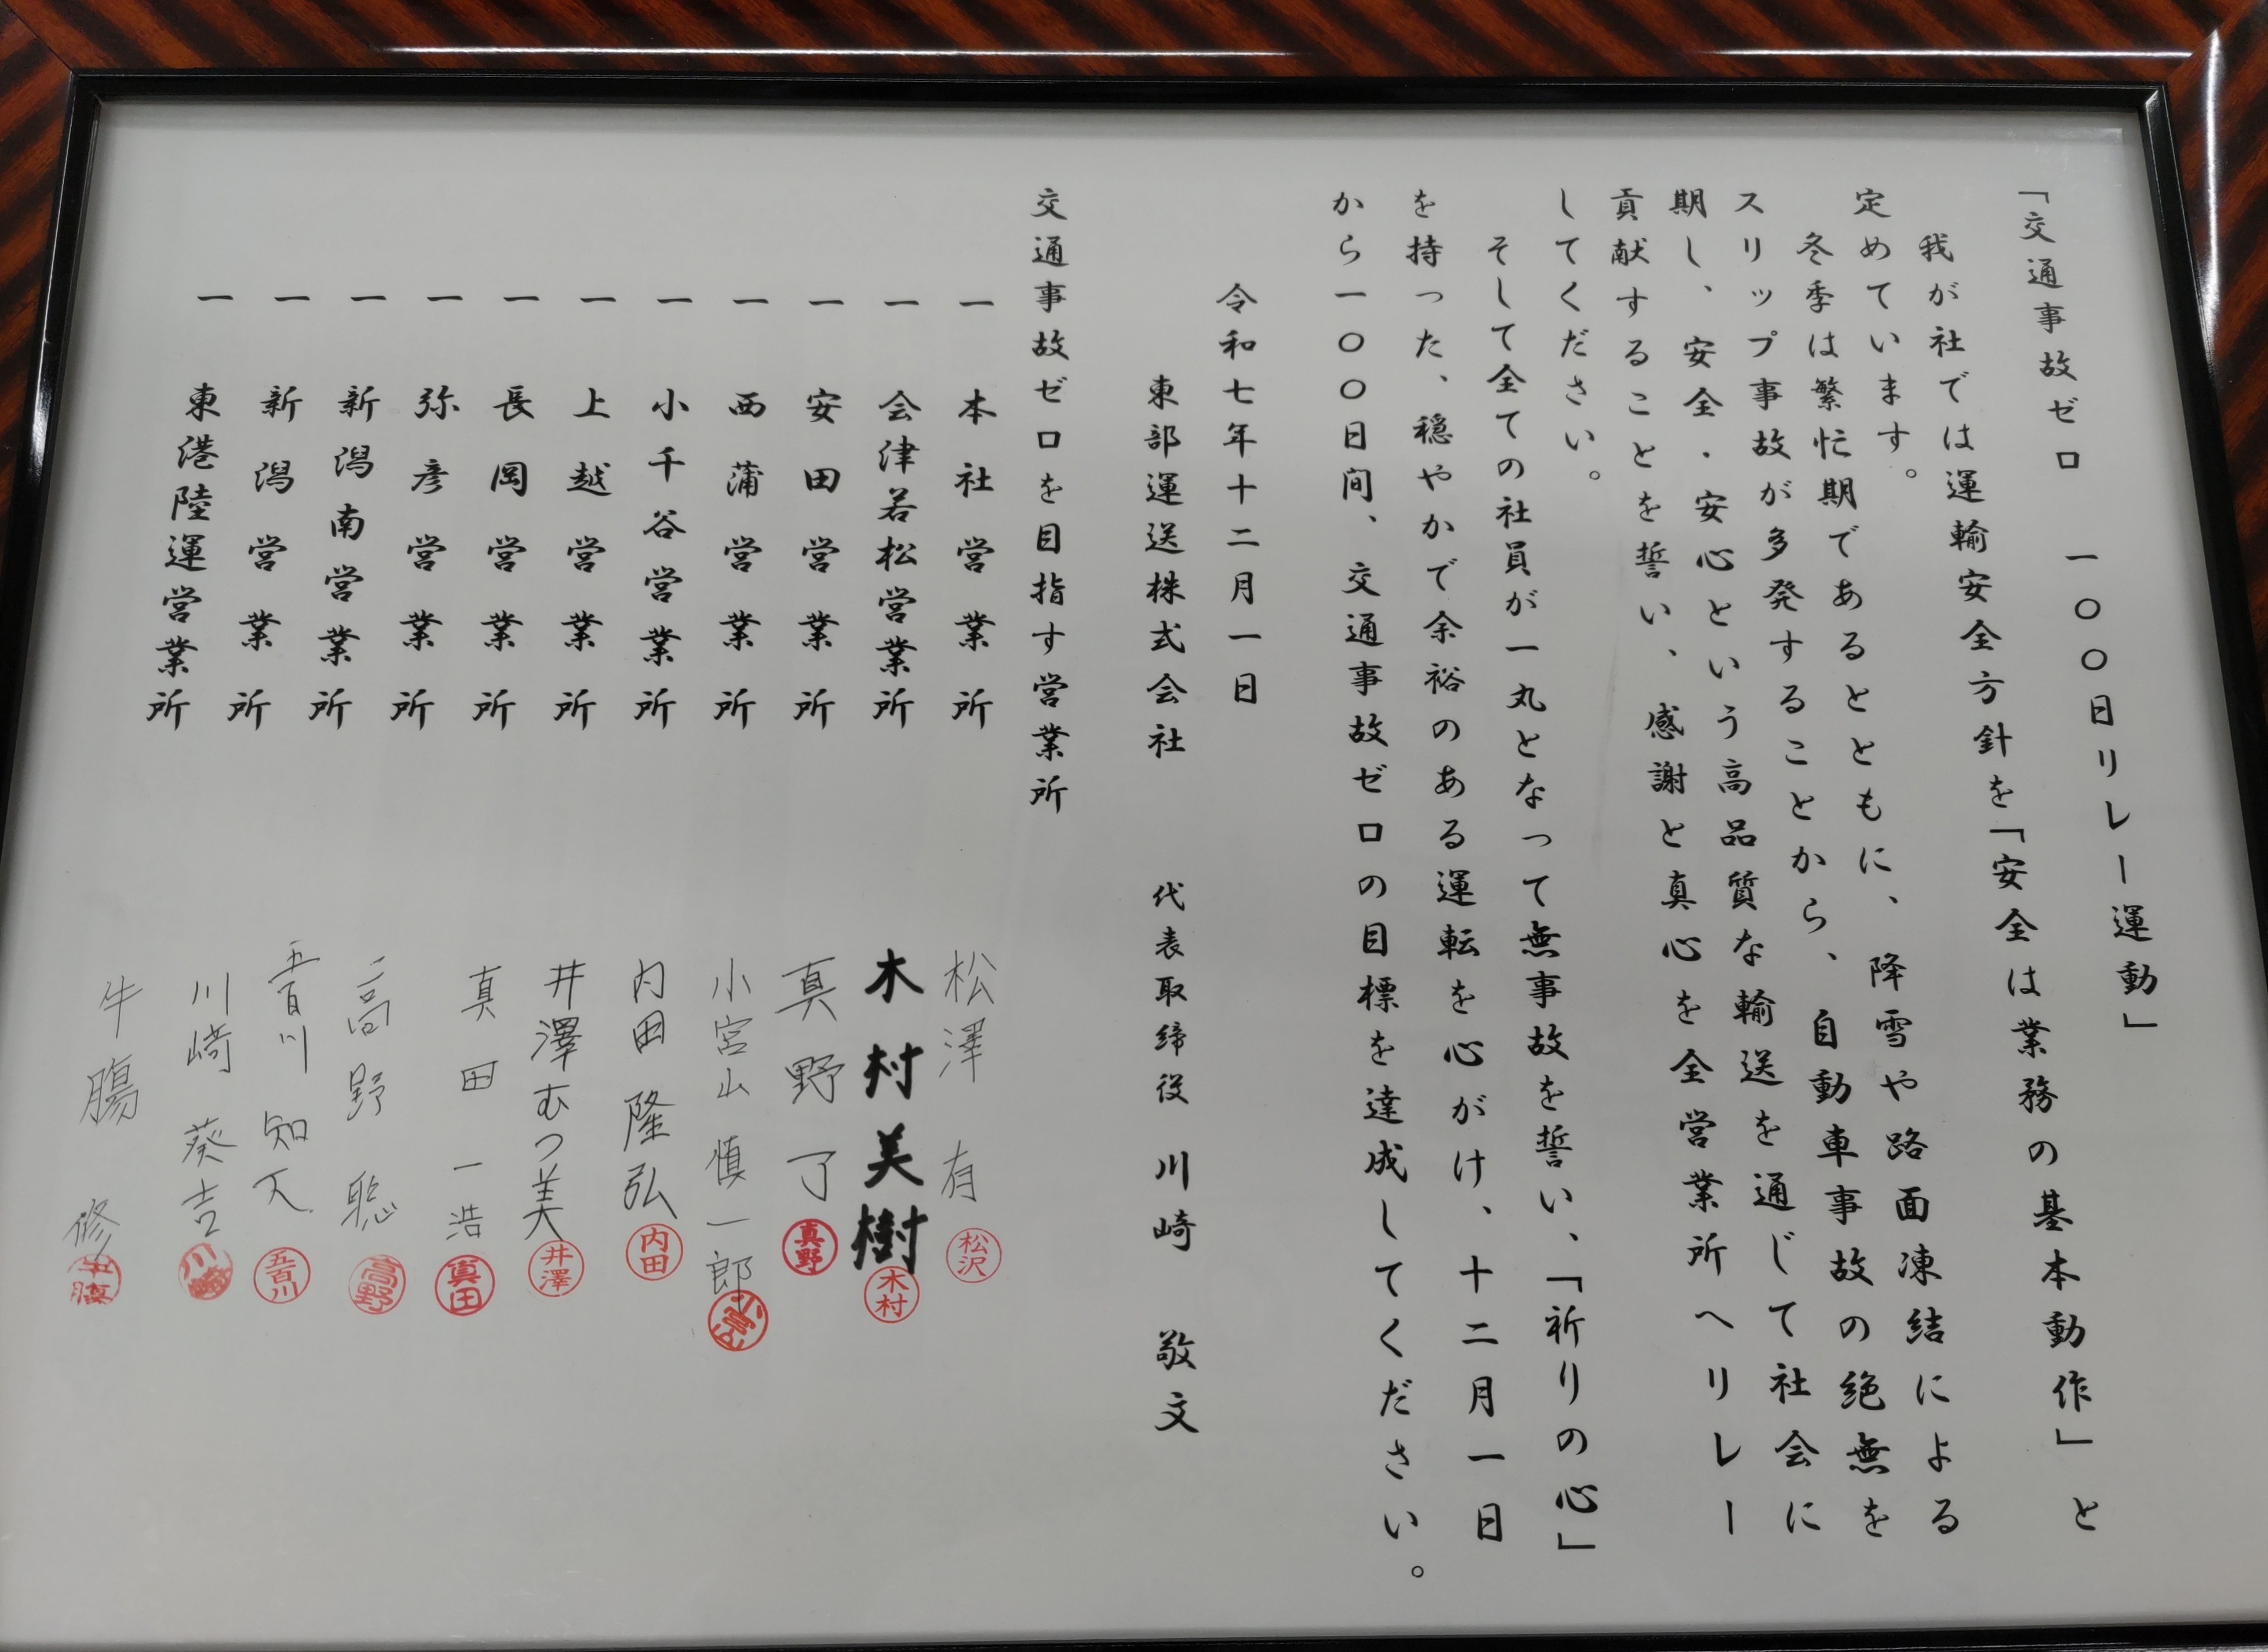 「交通事故ゼロ　一〇〇日リレー運動」
我が社では運輸安全方針を「安全は業務の基本動作」と
定めています。
冬季は繁忙期であるとともに、降雪や路面凍結による
スリップ事故が多発することから、自動車事故の絶無を
期し、安全・安心という高品質な輸送を通じて社会に
貢献することを誓い、感謝と真心を全営業所へリレー
してください。
そして全ての社員が一丸となって無事故を誓い、「祈りの心」
を持った、穏やかで余裕のある運転を心がけ、十二月一日
から一〇〇日間、交通事故ゼロの目標を達成してください。
令和七年十二月一日
東部運送株式会社　代表取締役　川崎　敬文
交通事故ゼロを目指す営業所
一　本社営業所　松澤　有　松沢
一　会津若松営業所　木村美樹　木村
一　安田営業所　真野　了　真野
一　西蒲営業所　小宮山　慎一郎
一　小千谷営業所　内田　隆弘　内田
一　上越営業所　井澤むつ美　井澤
一　長岡営業所　真田　一浩　真田
一　弥彦営業所　高野　聡　高野
一　新潟南営業所　五百川　知　五百川
一　新潟営業所　川崎　葵吉　川崎
一　東港陸運営業所　牛腸　修　牛腸